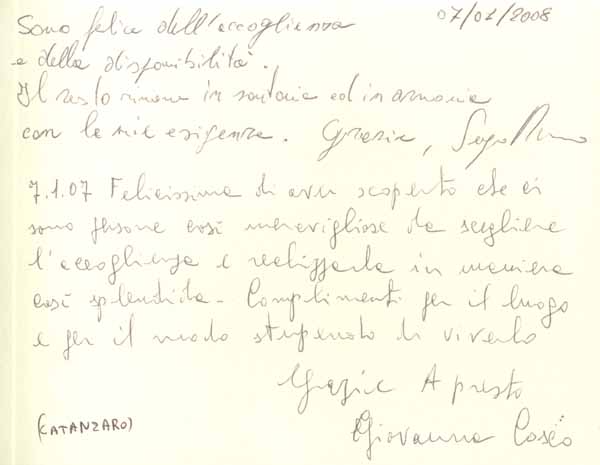 07/01/2008
Sono felice dell'accoglienza
e della disponibilità.
Il resto rimane in sintonia ed in armonia
con le mie esigenze. Grazie,
7.1.07 Felicissima di aver scoperto che ci
sono persone così meravigliose da scegliere
l'accoglienza e realizzarla in maniera
così splendida - Complimenti per il luogo
e per il modo stupendo di viverlo
Grazie A presto
(CATANZARO) Giovanna Cosco